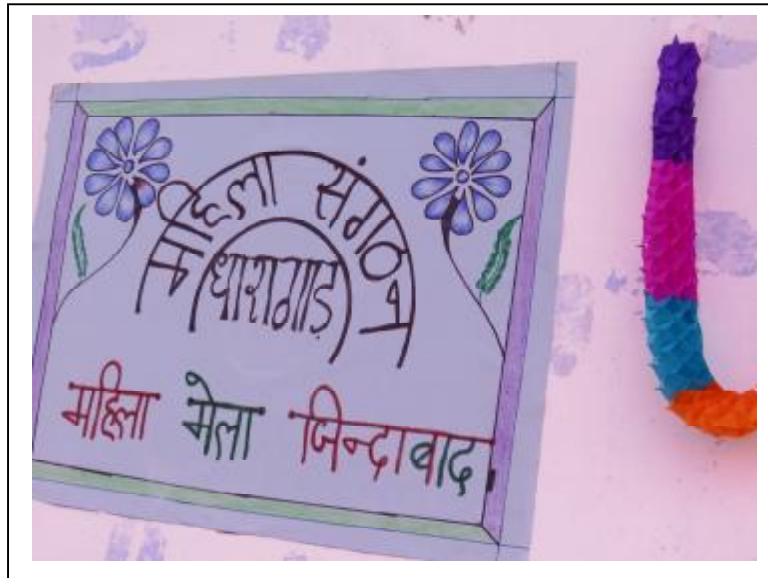 महिला संगठन
धारागाड़
महिला मेला जिन्दाबाद